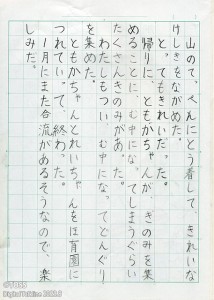 山のて、ぺんにとう着して、きれいな
けしきをながめた。
と、てもきれいだ、た。
帰りに、ともかちゃんが、きのみを集
めることに、む中にな、てしまうぐらい
たくさんきのみがあ、た。
わたしもつい、む中にな、てどんぐり
を集めた。
ともかちゃんとれいちゃんをほ育園に
つれてい、て、終わった。
1月にまた合流があるそうなので、楽
しみだ。